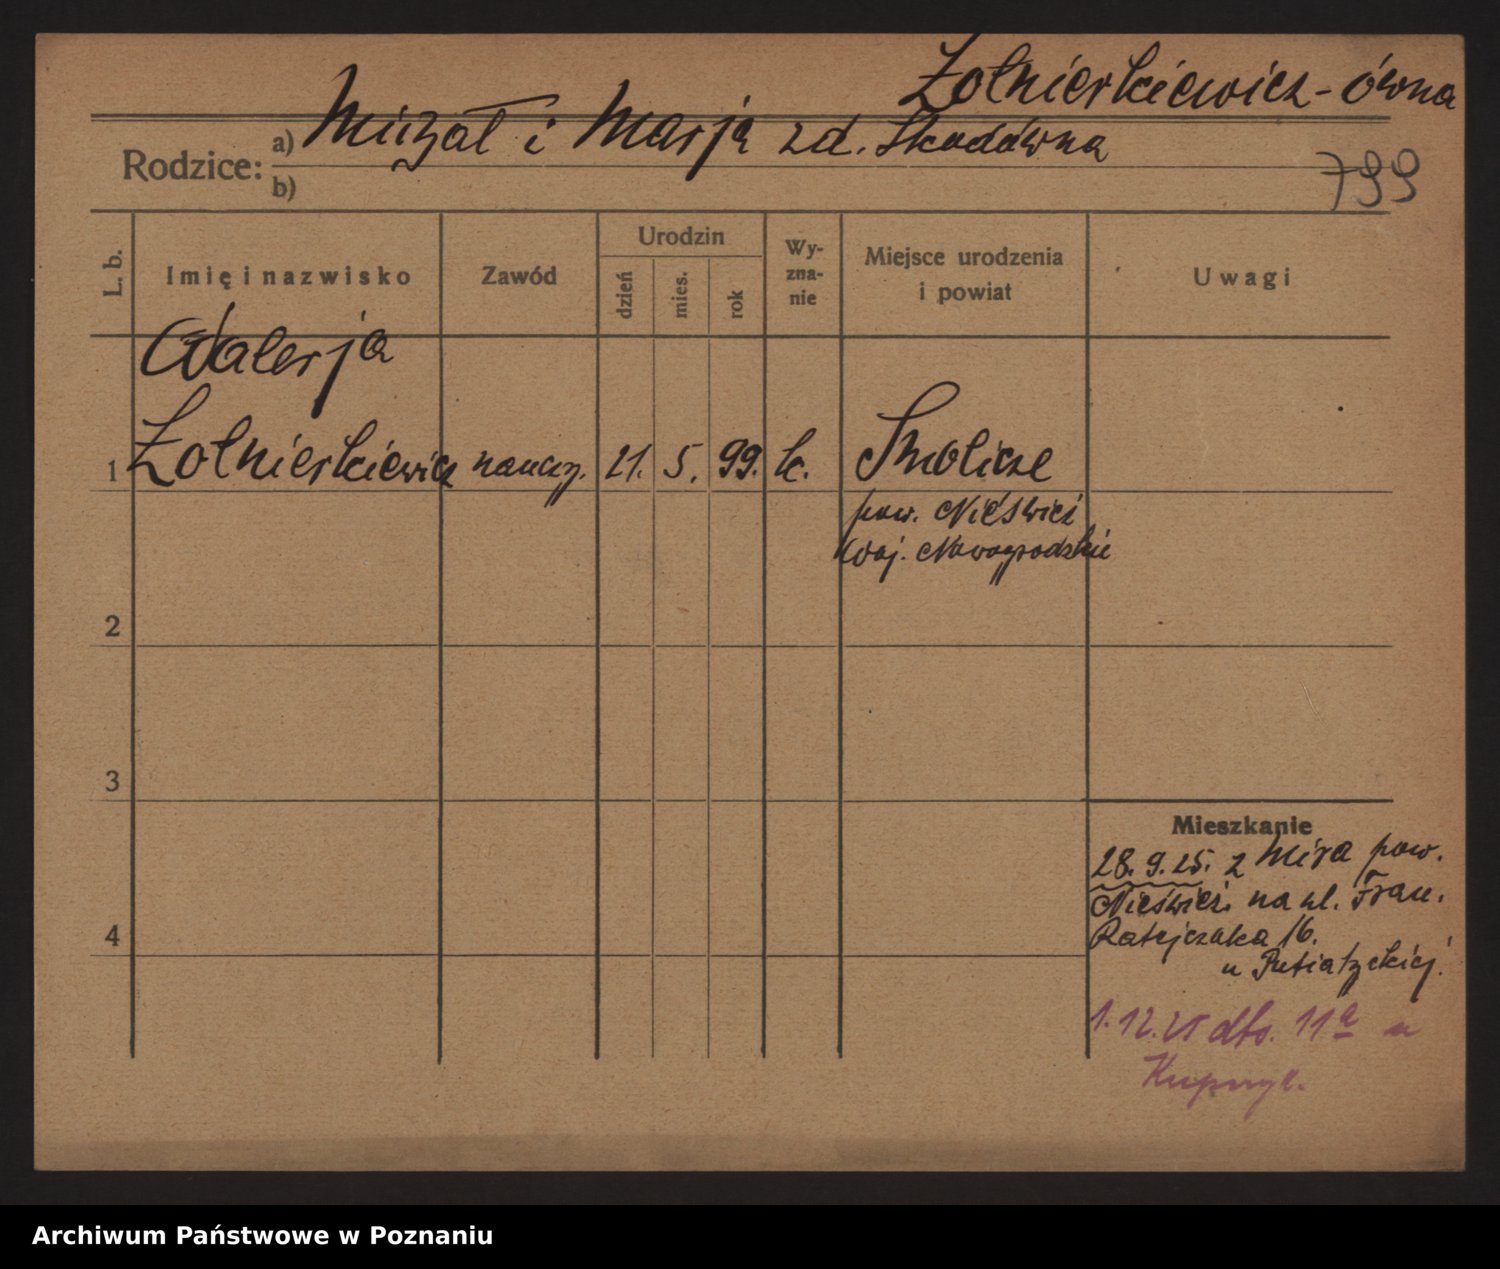 Żołnierkiewicz-ówna
Rodzice: a) Michał i Marja zd. Skodówna
b)
799
L. b.
Imię i nazwisko
Zawód
Urodzin
dzień
mies.
rok
Wy-
zna-
nie
Miejsce urodzenia
i powiat
Uwagi
Walerja
1 Żołnierkiewicz nauczy. 21. 5. 99. k. Smolicze
pow. Nieśwież
Woj. Nowogrodzkie
2
3
Mieszkanie
28. 9. 25. z Mira pow.
Nieśwież. na ul. Fran.
4
Ratajczaka 16.
u Putiatyckiej.
1.12.25 dto. 11a u
Archiwum Państwowe w Poznaniu